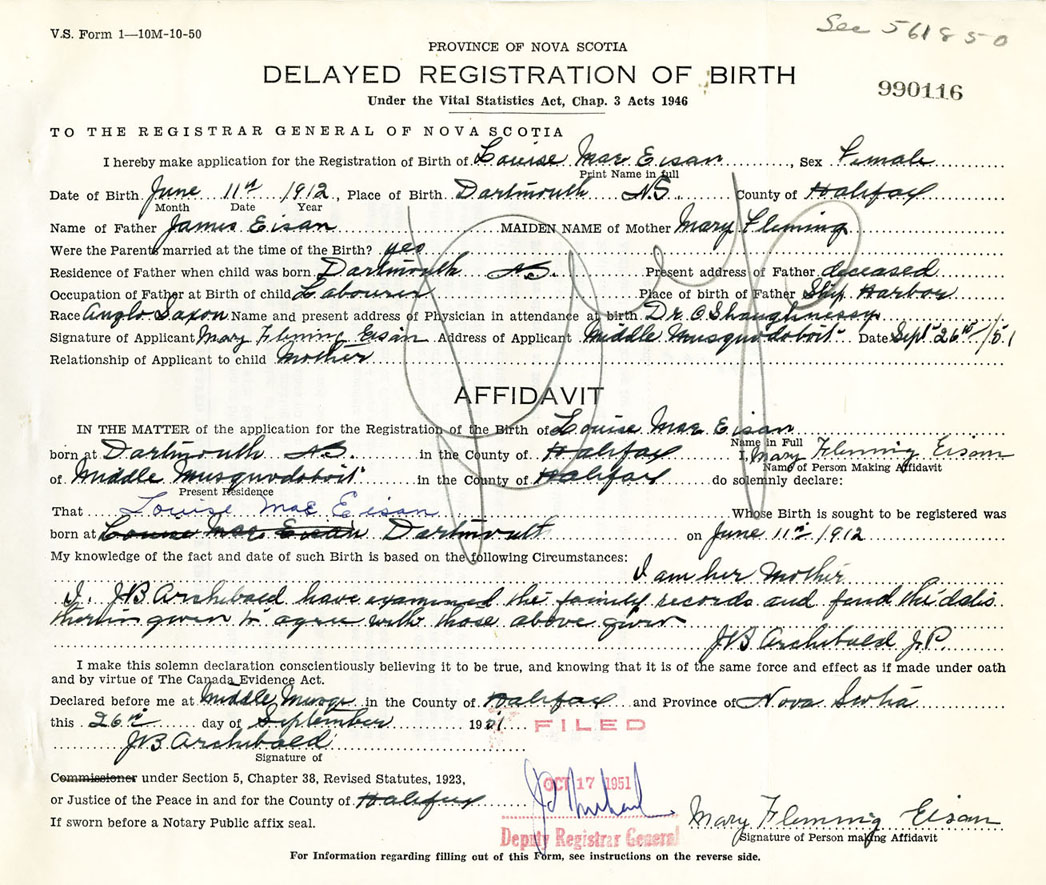 V.S. Form 1—10M-10-50
See 561850
PROVINCE OF NOVA SCOTIA
DELAYED REGISTRATION OF BIRTH
990116
Under the Vital Statistics Act, Chap. 3 Acts 1946
TO THE REGISTRAR GENERAL OF NOVA SCOTIA
I hereby make application for the Registration of Birth of Louise Mae Eisan, Sex Female
Print Name in full
Date of Birth June 11th 1912, Place of Birth Dartmouth N.S. County of Halifax
Month Date Year
Name of Father James Eisan MAIDEN NAME of Mother Mary Fleming
Were the Parents married at the time of the Birth? yes
Residence of Father when child was born Dartmouth N.S. Present address of Father deceased
Occupation of Father at Birth of child Labourer Place of birth of Father Ship Harbor
Race Anglo Saxon Name and present address of Physician in attendance at birth Dr. O Shaughnessy
Signature of Applicant Mary Fleming Eisan Address of Applicant Middle Musquodoboit Date Sept 26th/51
Relationship of Applicant to child Mother
AFFIDAVIT
IN THE MATTER of the application for the Registration of the Birth of Louise Mae Eisan
Name in Full
born at Dartmouth N.S. in the County of Halifax I, Mary Fleming Eisan
Name of Person Making Affidavit
of Middle Musquodoboit in the County of Halifax do solemnly declare:
Present Residence
That Louise Mae Eisan Whose Birth is sought to be registered was
born at Louise Mae Eisan Dartmouth on June 11th 1912
My knowledge of the fact and date of such Birth is based on the following Circumstances:
I am her Mother
I. JB Archibald have examined the family records and fund the dates
therein given to agree with those above given
JB Archibald J.P.
I make this solemn declaration conscientiously believing it to be true, and knowing that it is of the same force and effect as if made under oath
and by virtue of The Canada Evidence Act.
Declared before me at Middle Musqu. in the County of Halifax and Province of Nova Scotia
this 26th day of September 1951
FILED
JB Archibald
Signature of
Commissioner under Section 5, Chapter 38, Revised Statutes, 1923,
OCT 17 1951
or Justice of the Peace in and for the County of Halifax
Mary Fleming Eisan
If sworn before a Notary Public affix seal.
Deputy Registrar General
Signature of Person making Affidavit
For Information regarding filling out of this Form, see instructions on the reverse side.